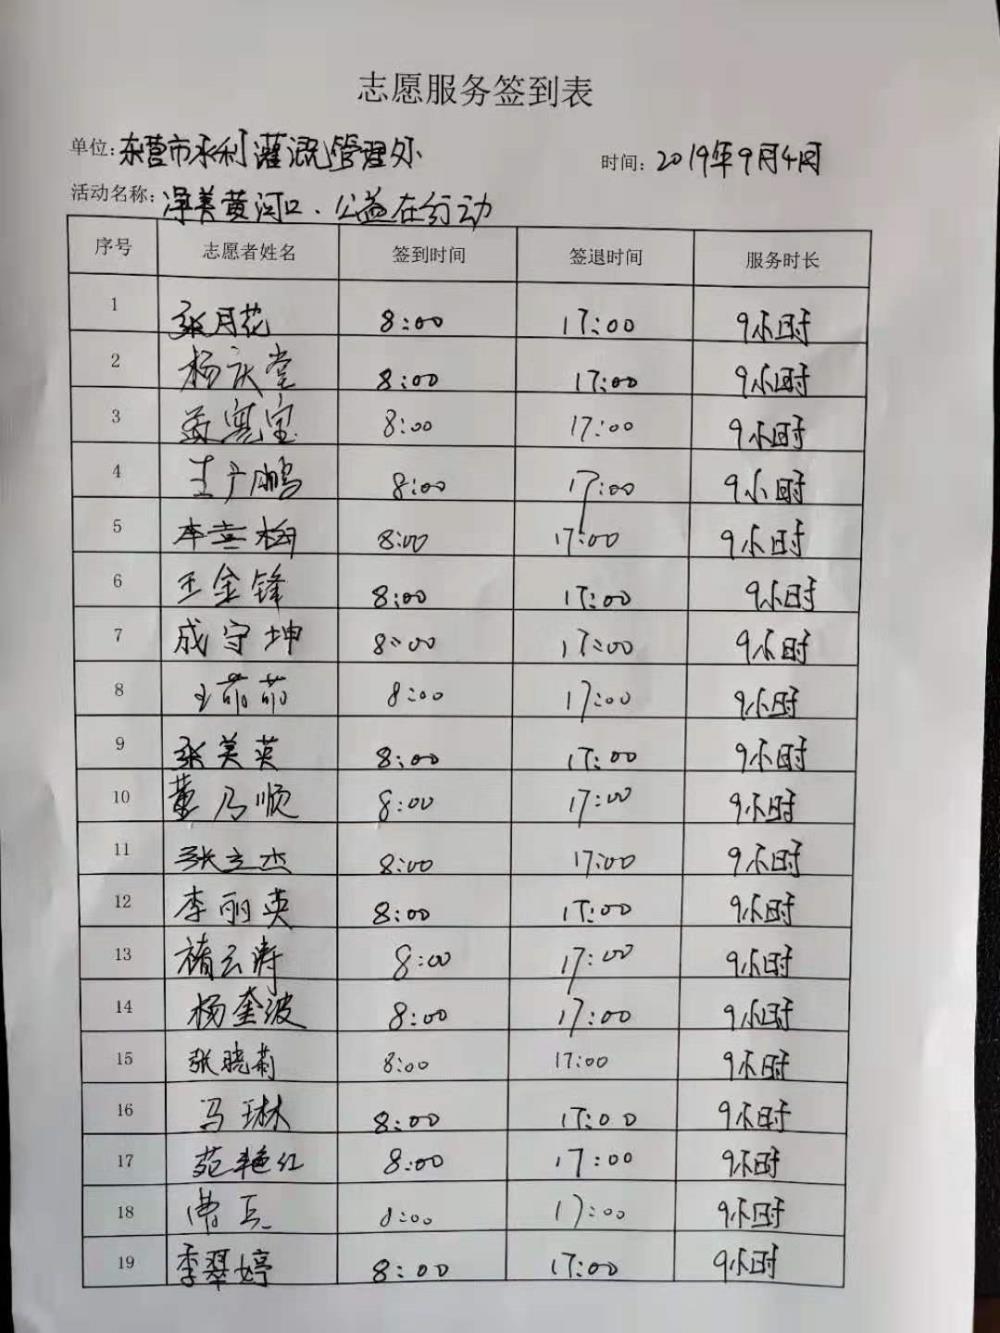 志愿服务签到表
单位: 东营市水利灌溉管理处 时间: 2019年9月4日
活动名称: 净美黄河口、公益在行动
序号 志愿者姓名 签到时间 签退时间 服务时长
1 张月花 8:00 17:00 9小时
2 杨庆堂 8:00 17:00 9小时
3 宝 8:00 17:00 9小时
4 王广鹏 8:00 17:00 9小时
5 李梅 8:00 17:00 9小时
6 王金锋 8:00 17:00 9小时
7 成守坤 8:00 17:00 9小时
8 王萌萌 8:00 17:00 9小时
9 张美英 8:00 17:00 9小时
10 董乃顺 8:00 17:00 9小时
11 张立杰 8:00 17:00 9小时
12 李丽英 8:00 17:00 9小时
13 褚云涛 8:00 17:00 9小时
14 杨奎波 8:00 17:00 9小时
15 张晓莉 8:00 17:00 9小时
16 冯琳 8:00 17:00 9小时
17 苑艳红 8:00 17:00 9小时
18 8:00 17:00 9小时
19 李翠婷 8:00 17:00 9小时